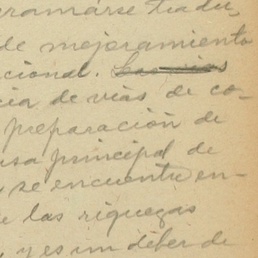 de mejoramiento
cional.
cia de vias de co-
preparación de
usa principal de
, se encuentre en-
e las riquezas
, y es un deber de